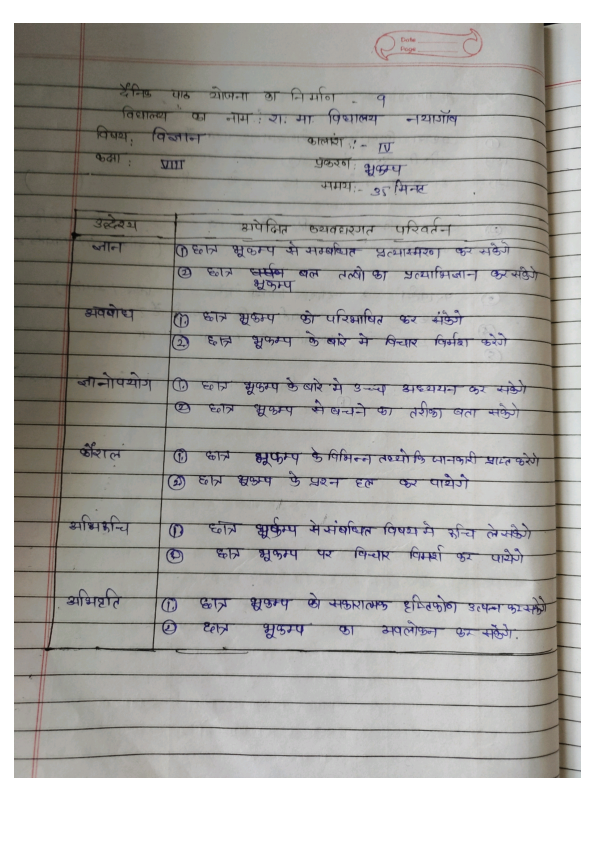 Date
Page
दैनिक पाठ योजना का निर्माण - 9
विद्यालय का नाम : रा. मा विद्यालय नयागाँव
विषय : विज्ञान कालांश :- IV
कक्षा : VIII प्रकरण : भूकम्प
समय :- 35 मिनट
उद्देश्य अपेक्षित व्यवहारगत परिवर्तन
ज्ञान ① छात्र भूकम्प से सम्बंधित प्रत्यास्मरण कर सकेगे
② छात्र घर्षण बल तथ्यो का प्रत्याभिज्ञान कर सकेगे
भूकम्प
अवबोध ①. छात्र भूकम्प को परिभाषित कर सकेगे
②. छात्र भूकम्प के बारे मे विचार विर्मश करेगे
ज्ञानोपयोग ①. छात्र भूकम्प के बारे मे उच्च अध्ययन कर सकेगे
② छात्र भूकम्प से बचने का तरीका बता सकेगे
कौशल ①. छात्र भूकम्प के विभिन्न तथ्यो कि जानकारी प्राप्त करेगे
② छात्र भूकम्प के प्रश्न हल कर पायेगे
अभिरूचि ①. छात्र भूकम्प से संबंधित विषय मे रूचि ले सकेगे
② छात्र भूकम्प पर विचार विमर्श कर पायेगे
अभिवृति ①. छात्र भूकम्प को सकारात्मक दृष्टिकोण उत्पन्न कर सकेगे
② छात्र भूकम्प का अवलोकन कर सकेगे.